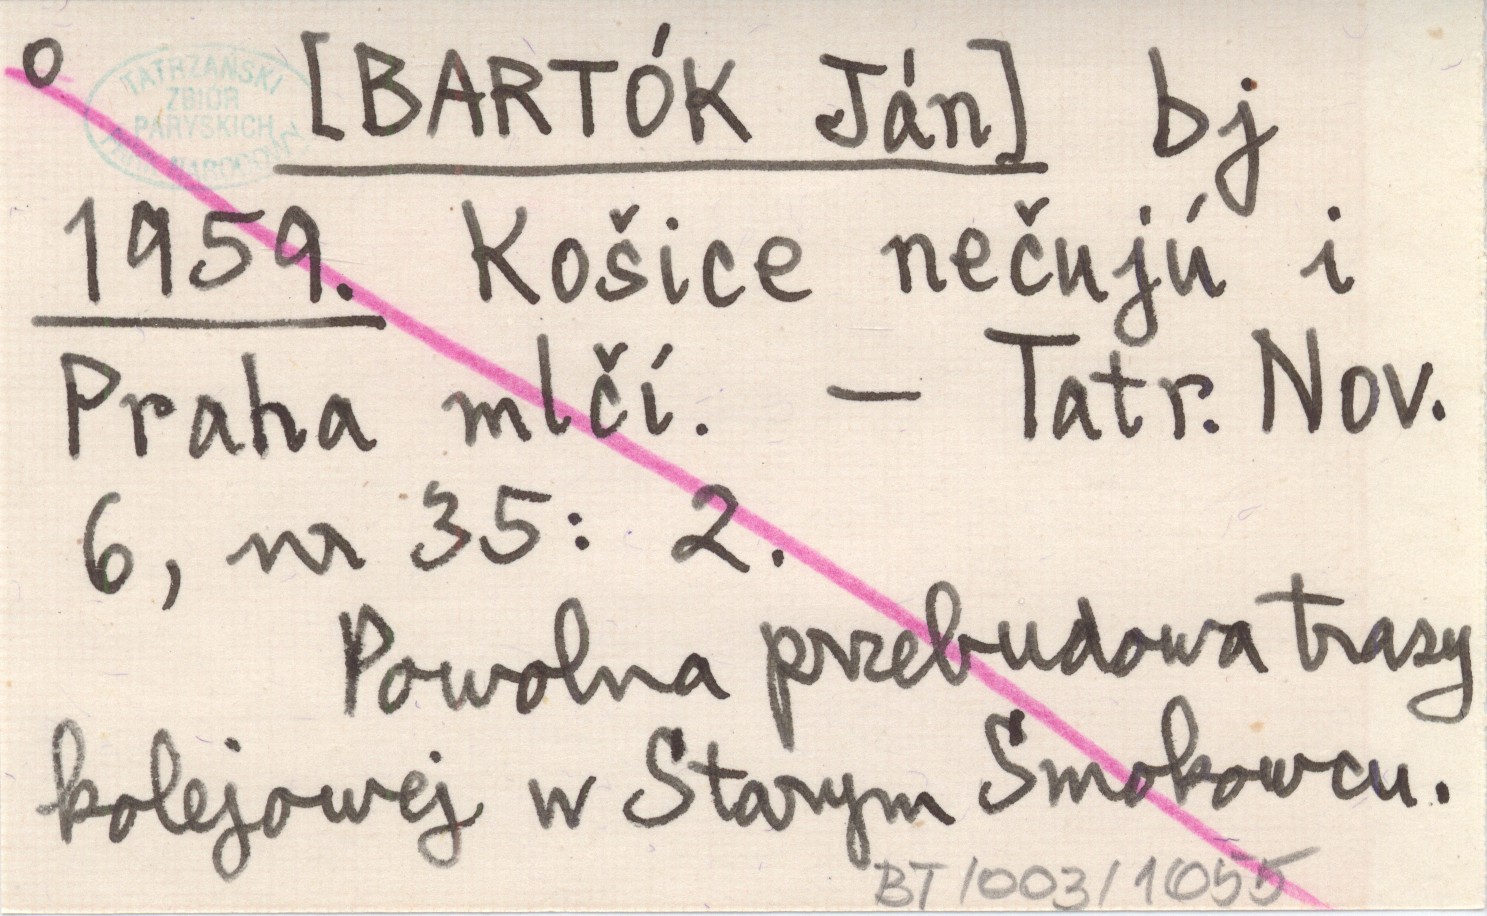 o
TATRZAŃSKI
ZBIÓR
PARYSKICH
[BARTÓK Ján] bj
1959. Košice nečujú i
Praha mlčí. — Tatr. Nov.
6, nr 35: 2.
Powolna przebudowa trasy
kolejowej w Starym Smokowcu.
BT/003/1055